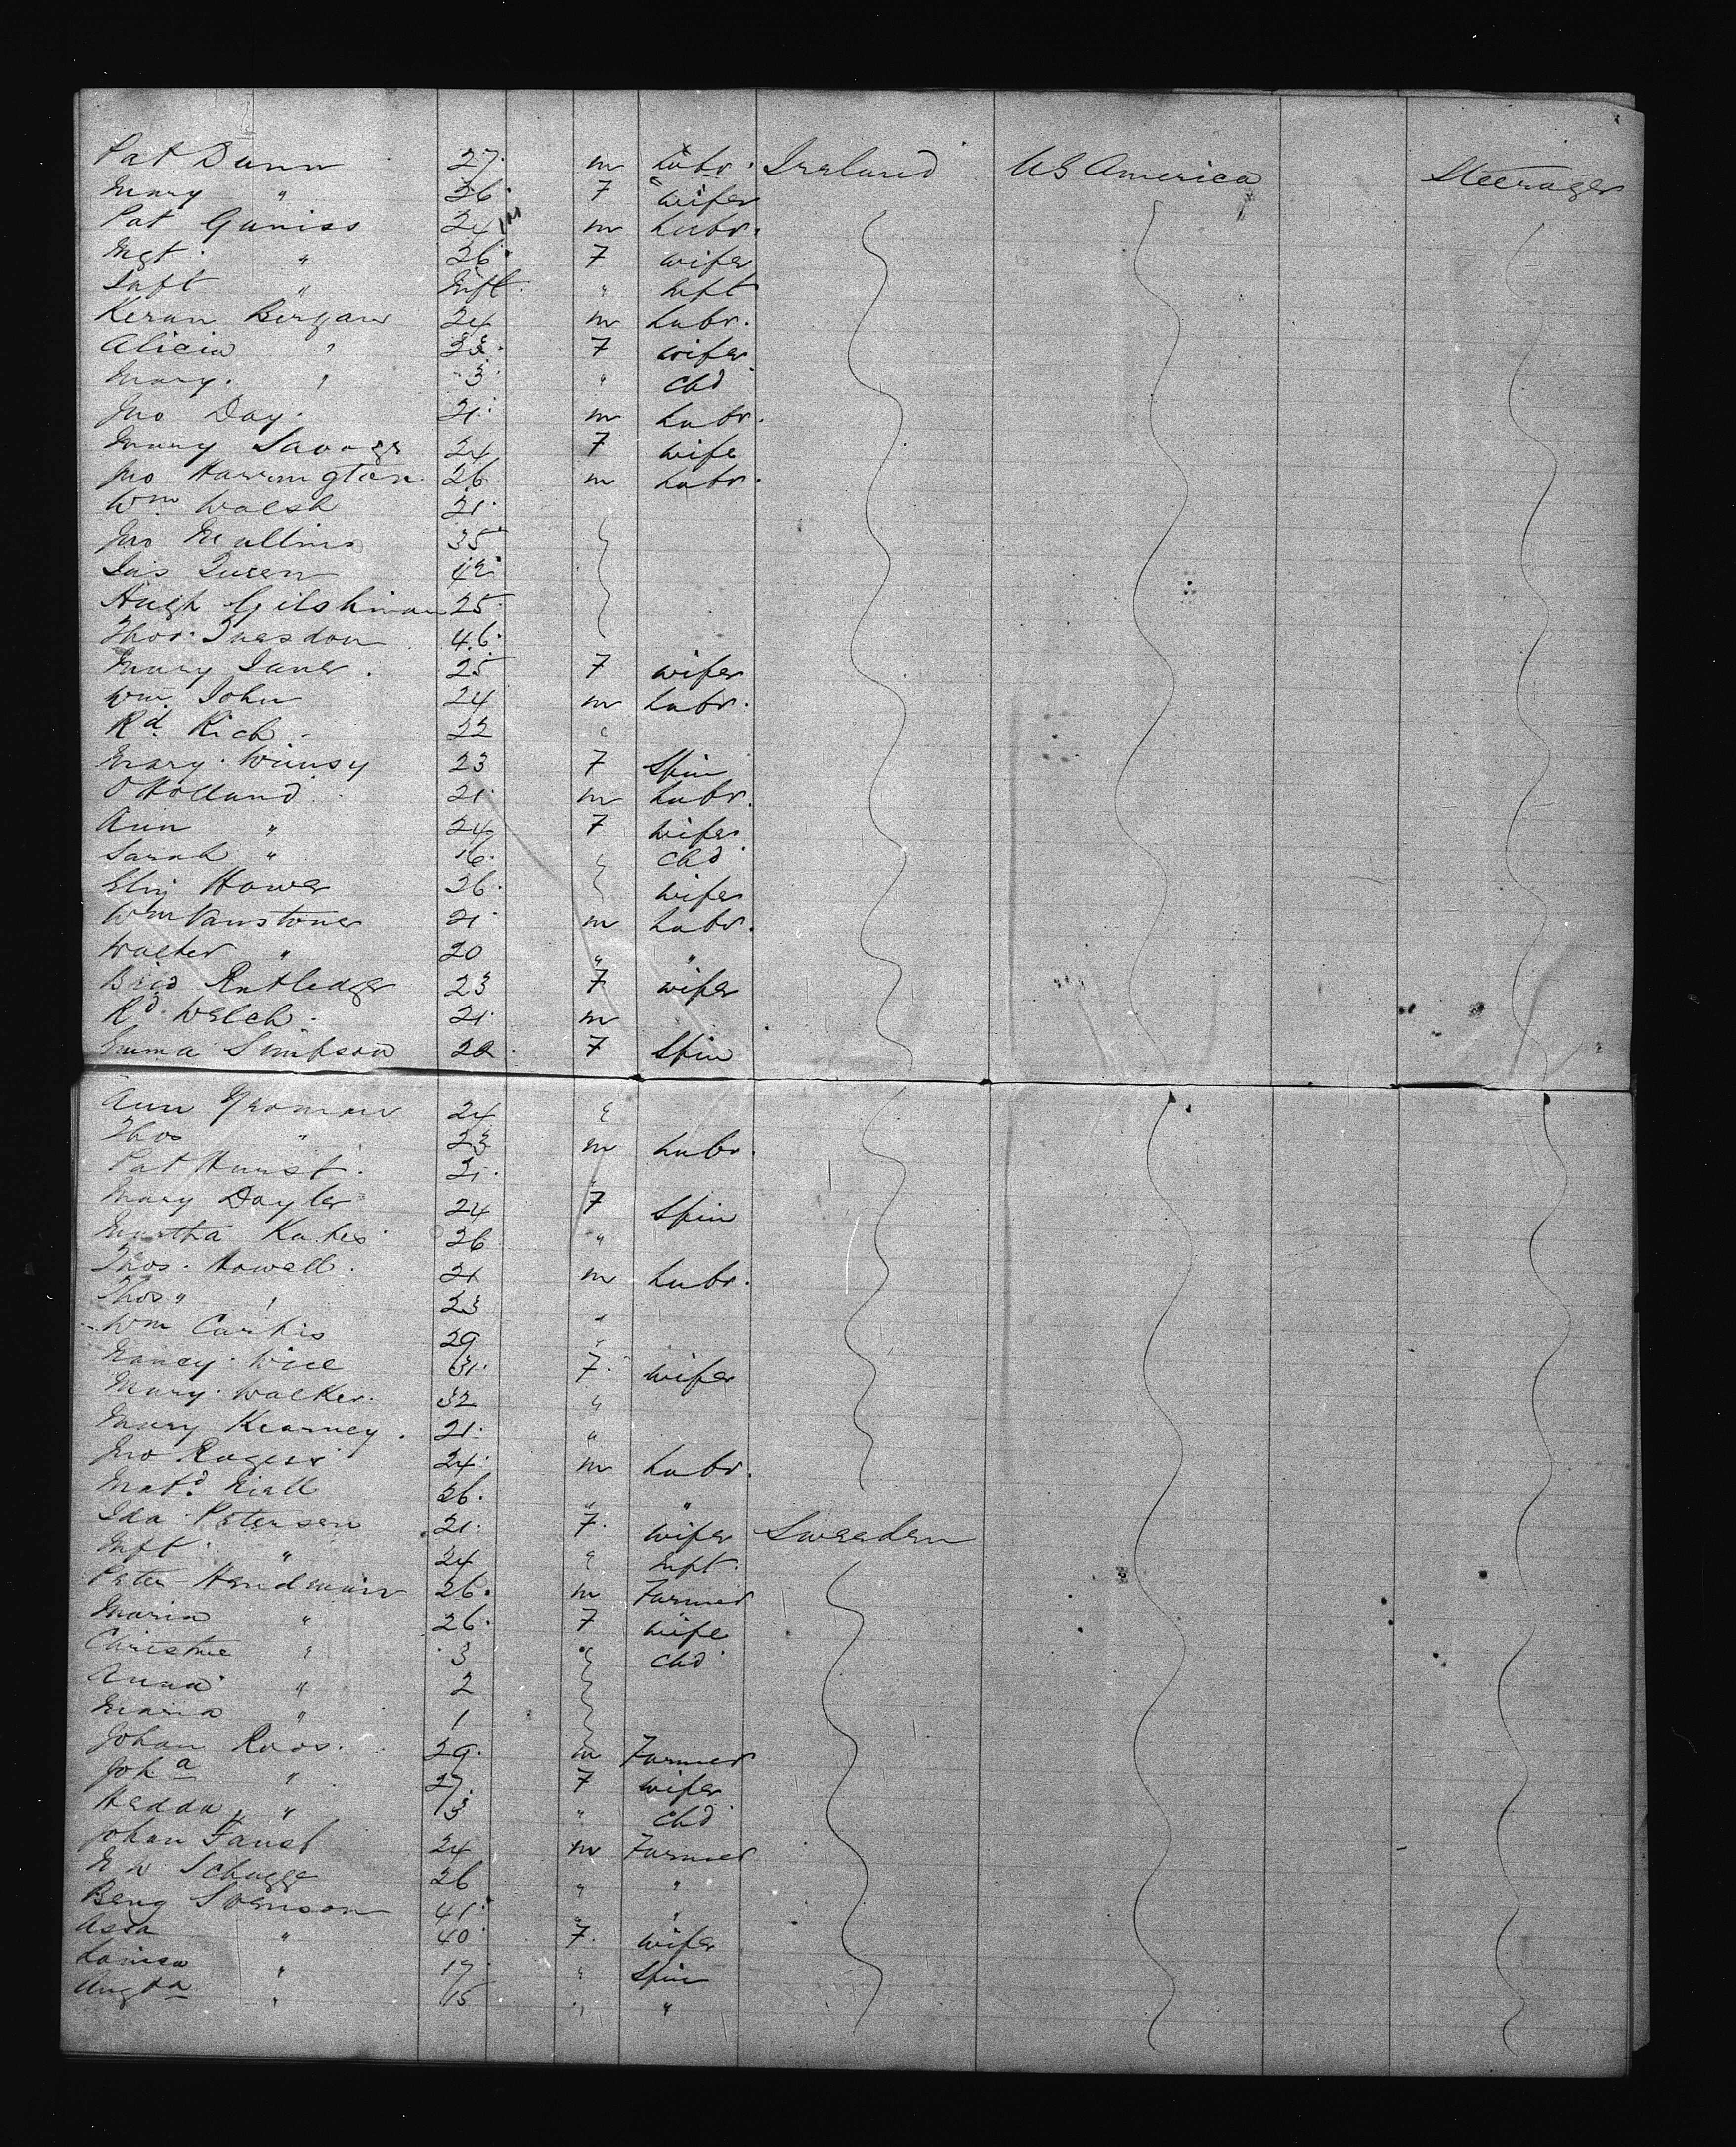 Pat Dunn 27 m Labr. Ireland US America Steerage
Mary " 36 F wife
Pat Guniss 24 m Labr.
Mgt " 26 F wife
Inft " Inft " Inft
Keran Bergan 24 m Labr.
Alicia " 23 F wife
Mary " 3 " chd
Jno Day 21 m Labr.
Mary Savage 24 F wife
Jno Harrington 26 m Labr.
Wm Walsh 21
Jno Mullins 35
Jas Queen 42
Hugh Gilshinan 25
Thos. 46
Mary Jane 25 F wife
Wm. John 24 m Labr.
Rd. Rich 22 "
Mary 23 F Spin
O Holland 21 m Labr.
Ann " 24 F wife
Sarah " 16 " chd
Eliz Howe 26 wife
Wm Vanstone 21 m Labr.
Walter " 20 " "
Brid Rutledge 23 F wife
Rd Welch 21 m
Emma Simpson 20 F Spin
Ann Yeoman 24 "
Thos " 23 m Labr.
Pat Hurst 21 "
Mary Doyle 24 F Spin
Martha 26 "
Thos. Howell 21 m Labr.
Thos " " 23 "
Wm Curtis 29 "
Nancy Wice 31 F wife
Mary Walker 32 "
Mary Kearney 21 "
Jno Rogers 24 m Labr.
Matd. Niall 26 " "
Ida Petersen 21 F wife Sweeden
Inft " 24 " Inft
Peter 26 m Farmer
Maria " 26 F wife
Christine " 3 " chd
Anna " 2
Maria " 1
Johan Roos 29 m Farmer
Joha " 27 F wife
Hedda " 3 " chd
Johan Faust 24 m Farmer
26 " "
Beng Svenson 41 " "
Assa " 40 F wife
Louisa " 17 " Spin
Augta " 15 " "